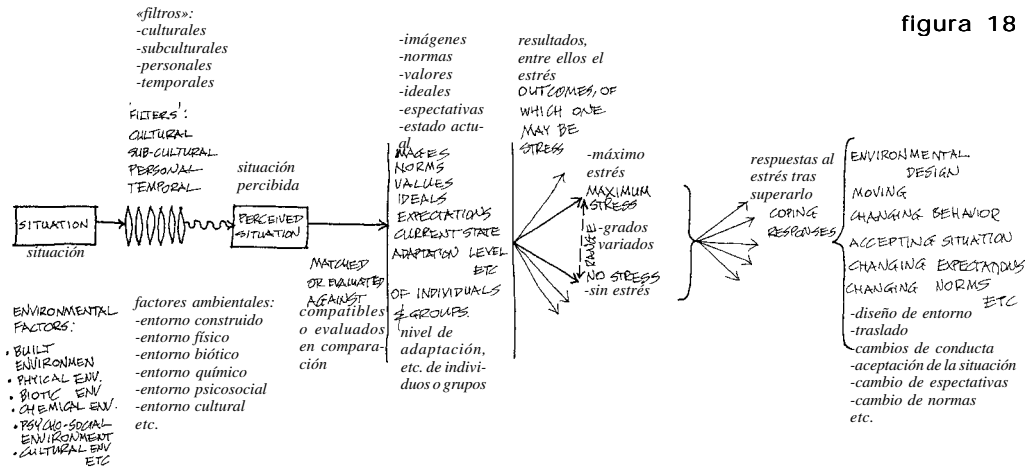 figura 18
«filtros»:
-culturales
-subculturales
-personales
-temporales
'FILTERS':
CULTURAL
SUB-CULTURAL
PERSONAL
TEMPORAL
SITUATION
situación
situación
percibida
PERCEIVED
SITUATION
ENVIRONMENTAL
FACTORS:
• BUILT
ENVIRONMEN
• PHYICAL ENV.
• BIOTIC ENV
• CHEMICAL ENV.
• PSYCHO-SOCIAL
ENVIRONMENT
• CULTURAL ENV
ETC
factores ambientales:
-entorno construido
-entorno físico
-entorno biótico
-entorno químico
-entorno psicosocial
-entorno cultural
etc.
MATCHED
OR EVALUATED
AGAINST
compatibles
o evaluados
en compara-
ción
-imágenes
-normas
-valores
-ideales
-espectativas
-estado actu-
al
IMAGES
NORMS
VALUES
IDEALS
EXPECTATIONS
CURRENT STATE
ADAPTATION LEVEL
ETC
OF INDIVIDUALS
& GROUPS
nivel de
adaptación,
etc. de indivi-
duos o grupos
resultados,
entre ellos el
estrés
OUTCOMES, OF
WHICH ONE
MAY BE
STRESS
-máximo
estrés
MAXIMUM
STRESS
RANGE
-grados
variados
NO STRESS
-sin estrés
respuestas al
estrés tras
superarlo
COPING
RESPONSES
ENVIRONMENTAL
DESIGN
MOVING
CHANGING BEHAVIOR
ACCEPTING SITUATION
CHANGING EXPECTATIONS
CHANGING NORMS
ETC
-diseño de entorno
-traslado
-cambios de conducta
-aceptación de la situación
-cambio de espectativas
-cambio de normas
etc.